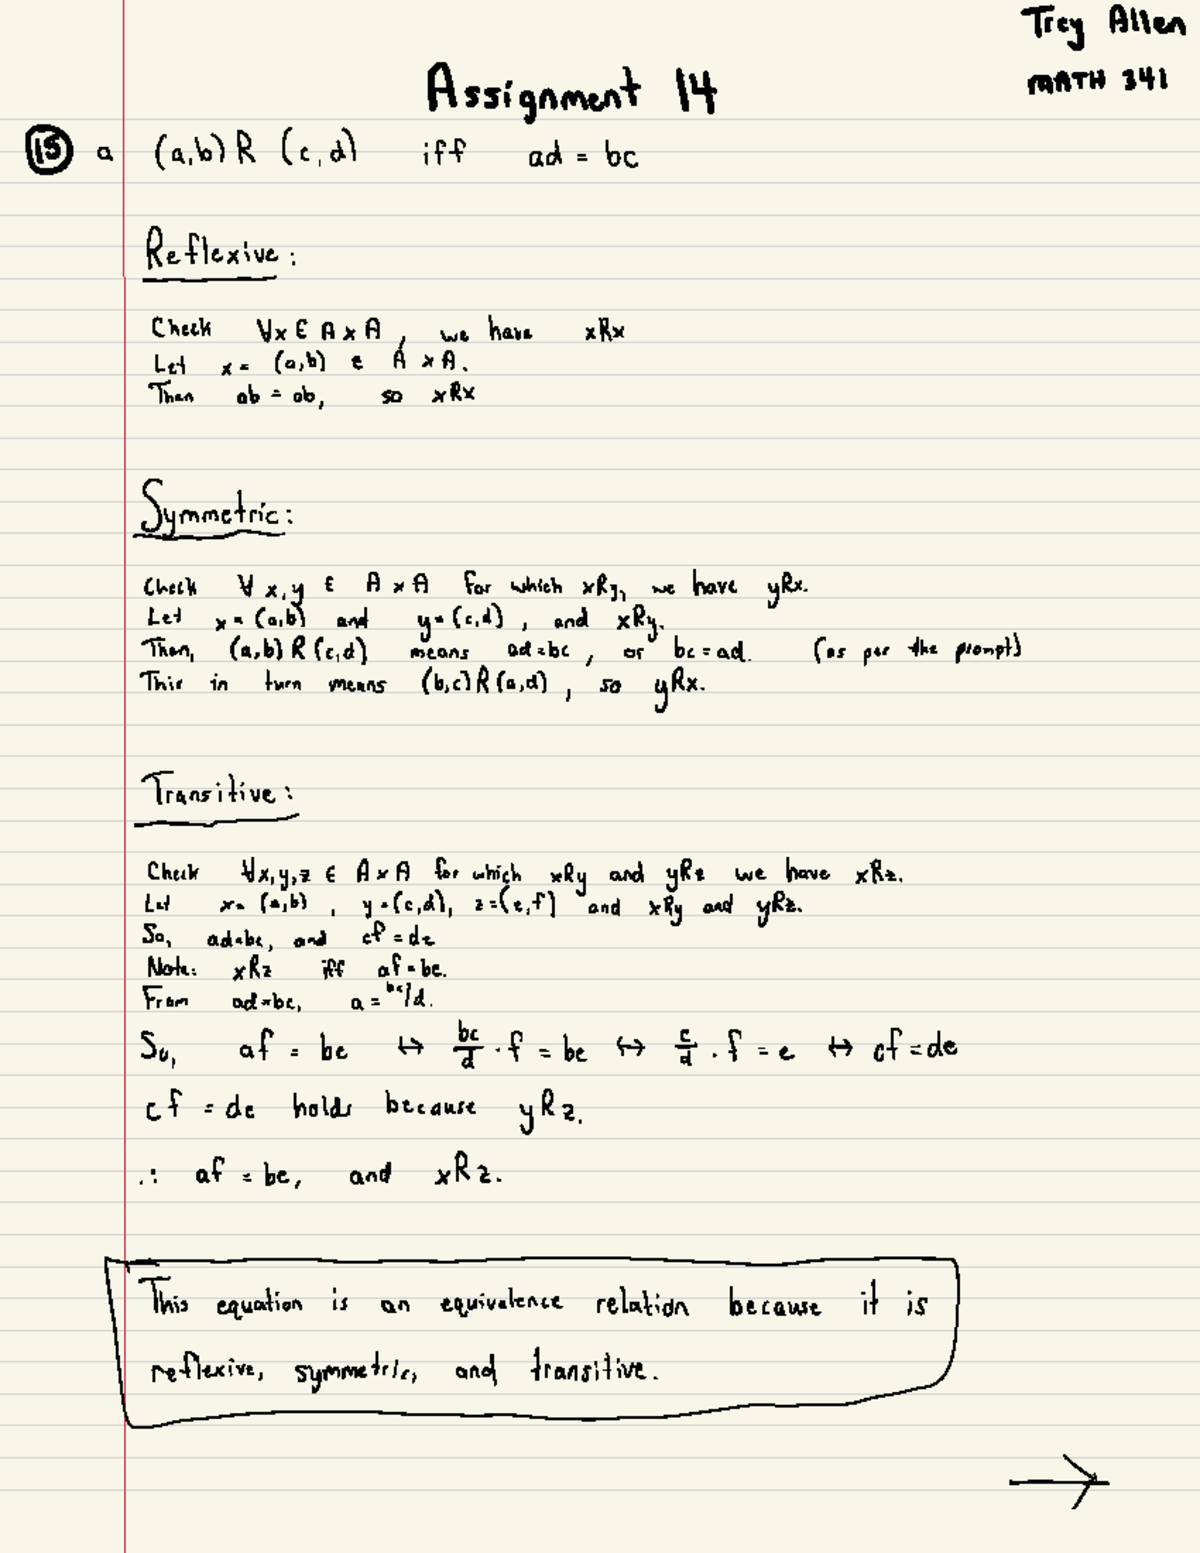 Trey Allen
MATH 341
Assignment 14
15 a (a,b) R (c,d) iff ad = bc
Reflexive:
Check ∀x ∈ A x A, we have xRx
Let x = (a,b) ∈ A x A.
Then ab = ab, so xRx
Symmetric:
Check ∀ x,y ∈ A x A for which xRy, we have yRx.
Let x = (a,b) and y = (c,d), and xRy.
Then, (a,b) R (c,d) means ad=bc, or bc=ad. (as per the prompt)
This in turn means (b,c) R (a,d), so yRx.
Transitive:
Check ∀x,y,z ∈ A x A for which xRy and yRz we have xRz.
Let x = (a,b), y = (c,d), z = (e,f) and xRy and yRz.
So, ad=bc, and cf = de
Note: xRz iff af=be.
From ad=bc, a = bc/d.
So, af = be ↔ bc/d · f = be ↔ c/d · f = e ↔ cf = de
cf = de holds because yRz.
∴ af = be, and xRz.
This equation is an equivalence relation because it is
reflexive, symmetric, and transitive.